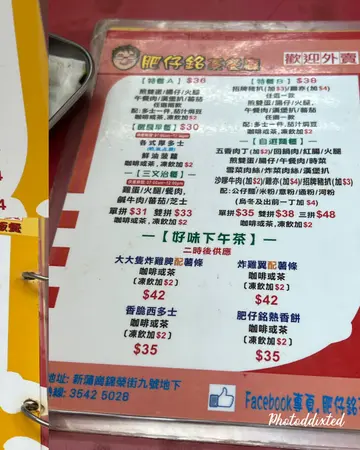 肥仔銘
歡迎外賣
【特餐A】$36
煎雙蛋/腸仔/火腿
午餐肉/漢堡扒/蕃茄
任選兩款
配:多士一件,茄汁焗豆
咖啡或茶,凍飲加$2
【特餐B】$38
招牌豬扒(加$3)/雞亦(加$4)
任選一款
煎雙蛋/腸仔/火腿,
午餐肉/漢堡扒/蕃茄
任選一款
配:多士一件,茄汁焗豆
咖啡或茶,凍飲加$2
$30
各式厚多士
鮮油菠蘿
咖啡或茶,凍飲加$2
【三文治餐】
雞蛋/火腿/餐肉,
鹹牛肉/蕃茄/芝士
單拼$31 雙拼$33
咖啡或茶,凍飲加$2
【自選麵餐】
五香肉丁(加$2)/回鍋肉/紅腸/火腿
煎雙蛋/腸仔/午餐肉/時菜
雪菜肉絲/炸菜肉絲/漢堡扒
沙嗲牛肉(加$2)/雞亦(加$4)/招牌豬扒(加$3)
配:公仔麵/米粉/意粉/通粉/河粉
(烏冬及出前一丁加$4)
單拼$35 雙拼$38 三拼$48
咖啡或茶,凍飲加$2
【好味下午茶】
二時後供應
大大隻炸雞髀配薯條
咖啡或茶
(凍飲加$2)
$42
炸雞翼配薯條
咖啡或茶
(凍飲加$2)
$42
香脆西多士
咖啡或茶
(凍飲加$2)
$35
肥仔銘熱香餅
咖啡或茶
(凍飲加$2)
$35
地址: 新蒲崗錦榮街九號地下
3542 5028
Facebook專頁,肥仔銘
Photoddixted